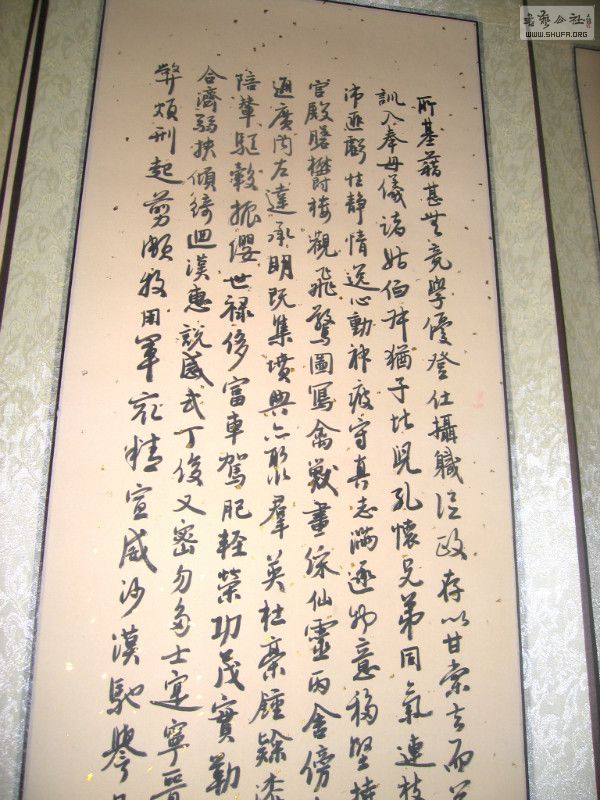 書藝公社
WWW.SHUFA.ORG
所基藉甚無竟學優登仕攝職從政存以甘棠去而
訓入奉母儀諸姑伯叔猶子比兒孔懷兄弟同氣連枝
沛匪虧性靜情逸心動神疲守真志滿逐物意移堅持
宮殿盤欝樓觀飛驚圖寫禽獸畫綵仙靈丙舍傍
通廣內左達承明既集墳典亦聚羣英杜稾鍾隸漆
陪輦驅轂振纓世祿侈富車駕肥輕策功茂實勒
合濟弱扶傾綺迴漢惠說感武丁俊乂密勿多士寔寧晉
弊煩刑起翦頗牧用軍最精宣威沙漠馳譽